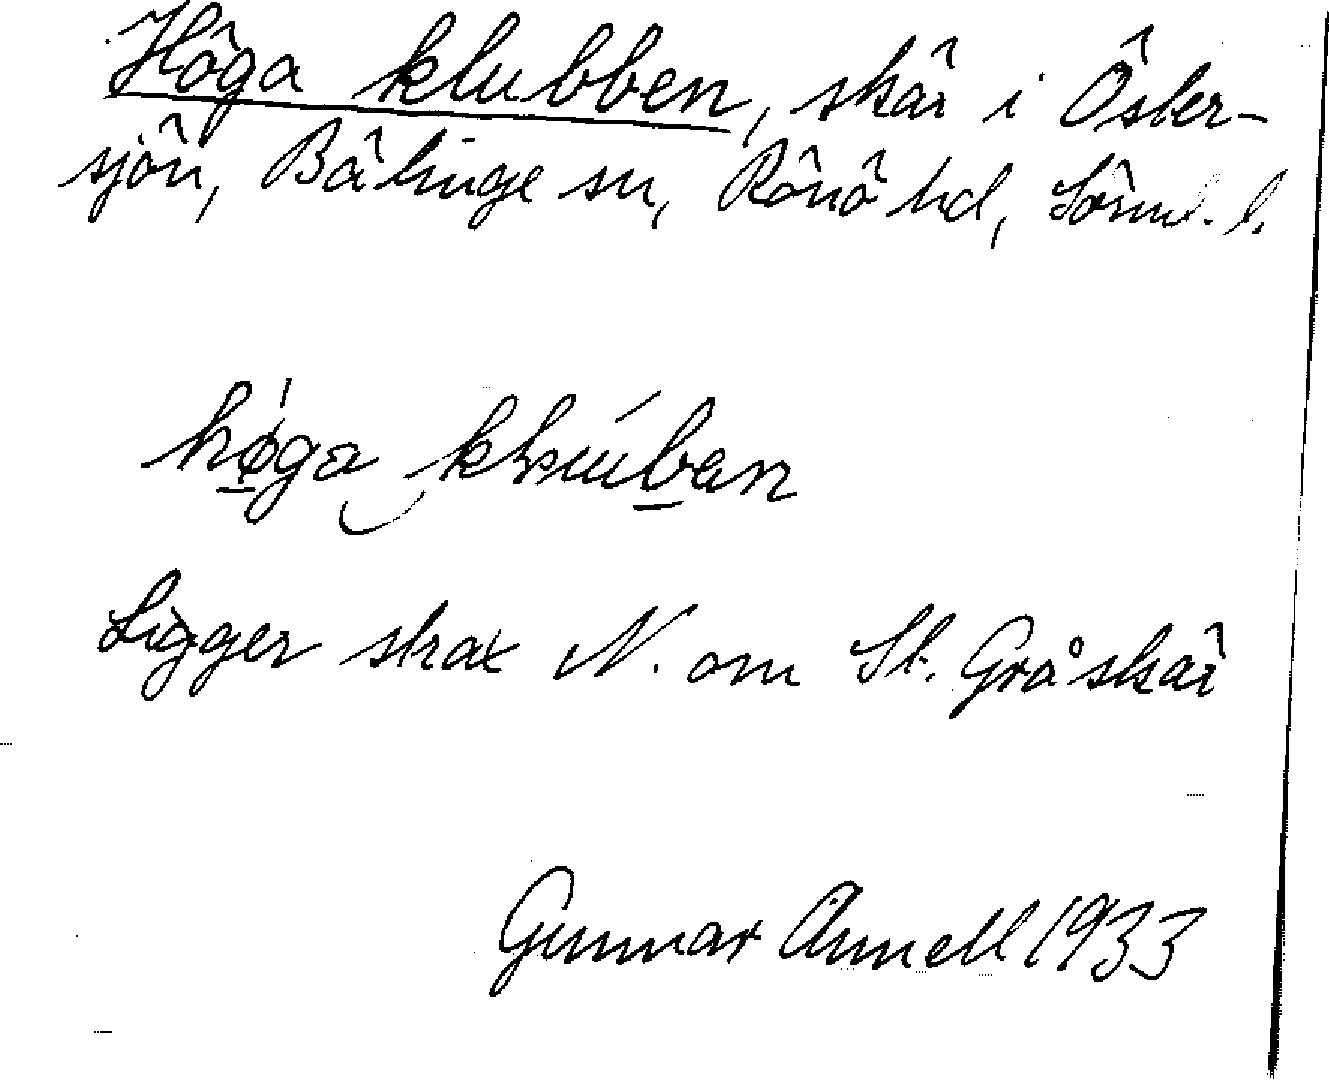 Höga klubben, skär i Öster-
sjön, Bälinge sn, Rönö hd, Sörml. l.
Ligger strax N. om St. Gråskär
Gunnar Annell 1933